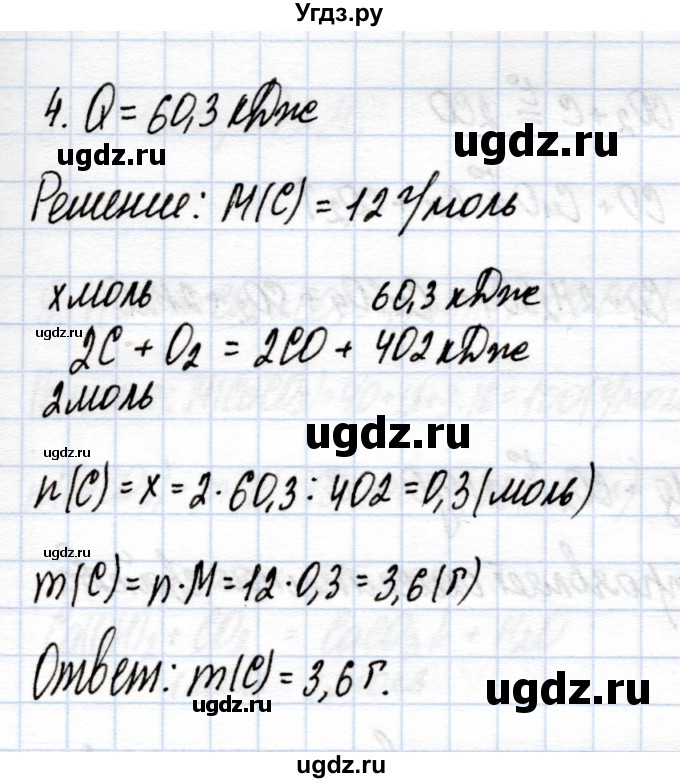 Угдз.ру
4. Q = 60,3 кДж
ugdz.ru
Решение: M(C) = 12 г/моль
x моль 60,3 кДж
ugdz.ru
2C + O₂ = 2CO + 402 кДж
2 моль
ugdz.ru
ugdz.ru
n(C) = x = 2 · 60,3 : 402 = 0,3 (моль)
ugdz.ru
m(C) = n · M = 12 · 0,3 = 3,6 (г)
Ответ: m(C) = 3,6 г.
ugdz.ru
ugdz.ru
ugdz.ru